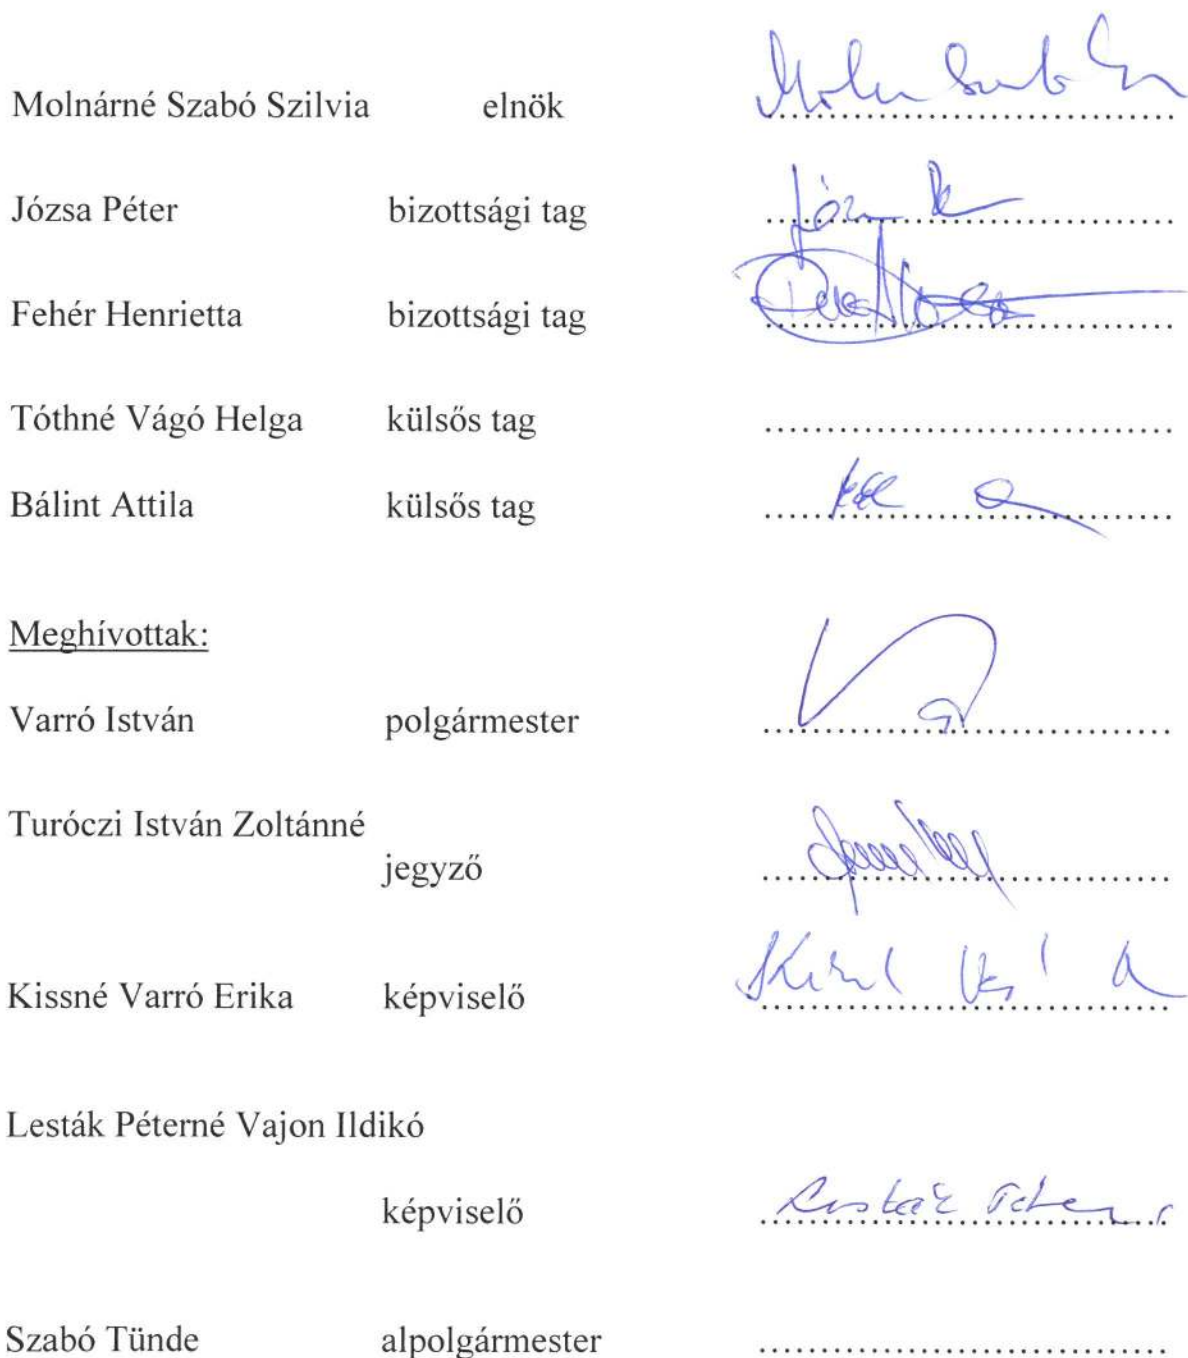 Molnárné Szabó Szilvia elnök
Józsa Péter bizottsági tag
Fehér Henrietta bizottsági tag
Tóthné Vágó Helga külsős tag
Bálint Attila külsős tag
Meghívottak:
Varró István polgármester
Turóczi István Zoltánné
jegyző
Kissné Varró Erika képviselő
Lesták Péterné Vajon Ildikó
képviselő
Szabó Tünde alpolgármester